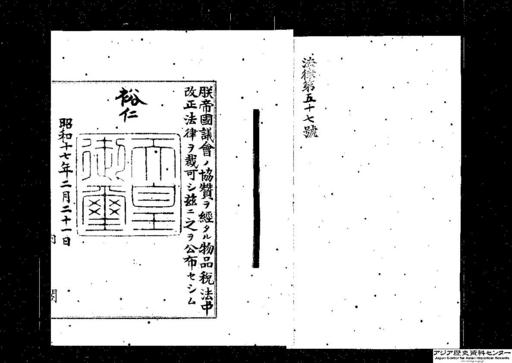 法律第五十七號
朕帝國議會ノ協贊ヲ經タル物品稅法中
改正法律ヲ裁可シ茲ニ之ヲ公布セシム
裕仁
天皇
御璽
昭和十七年二月二十一日
アジア歴史資料センター
Japan Center for Asian Historical Records